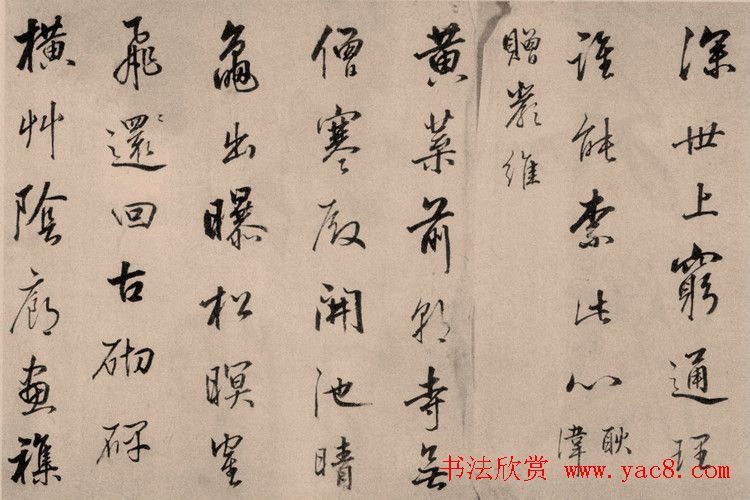 深世上窮通理
誰能柰此心 耿湋
贈嚴維
黄葉前朝寺無
僧寒殿開池晴
龜出曝松暝寉
飛還回古砌碑
橫艸陰廊畫雜
书法欣赏 www.yac8.com